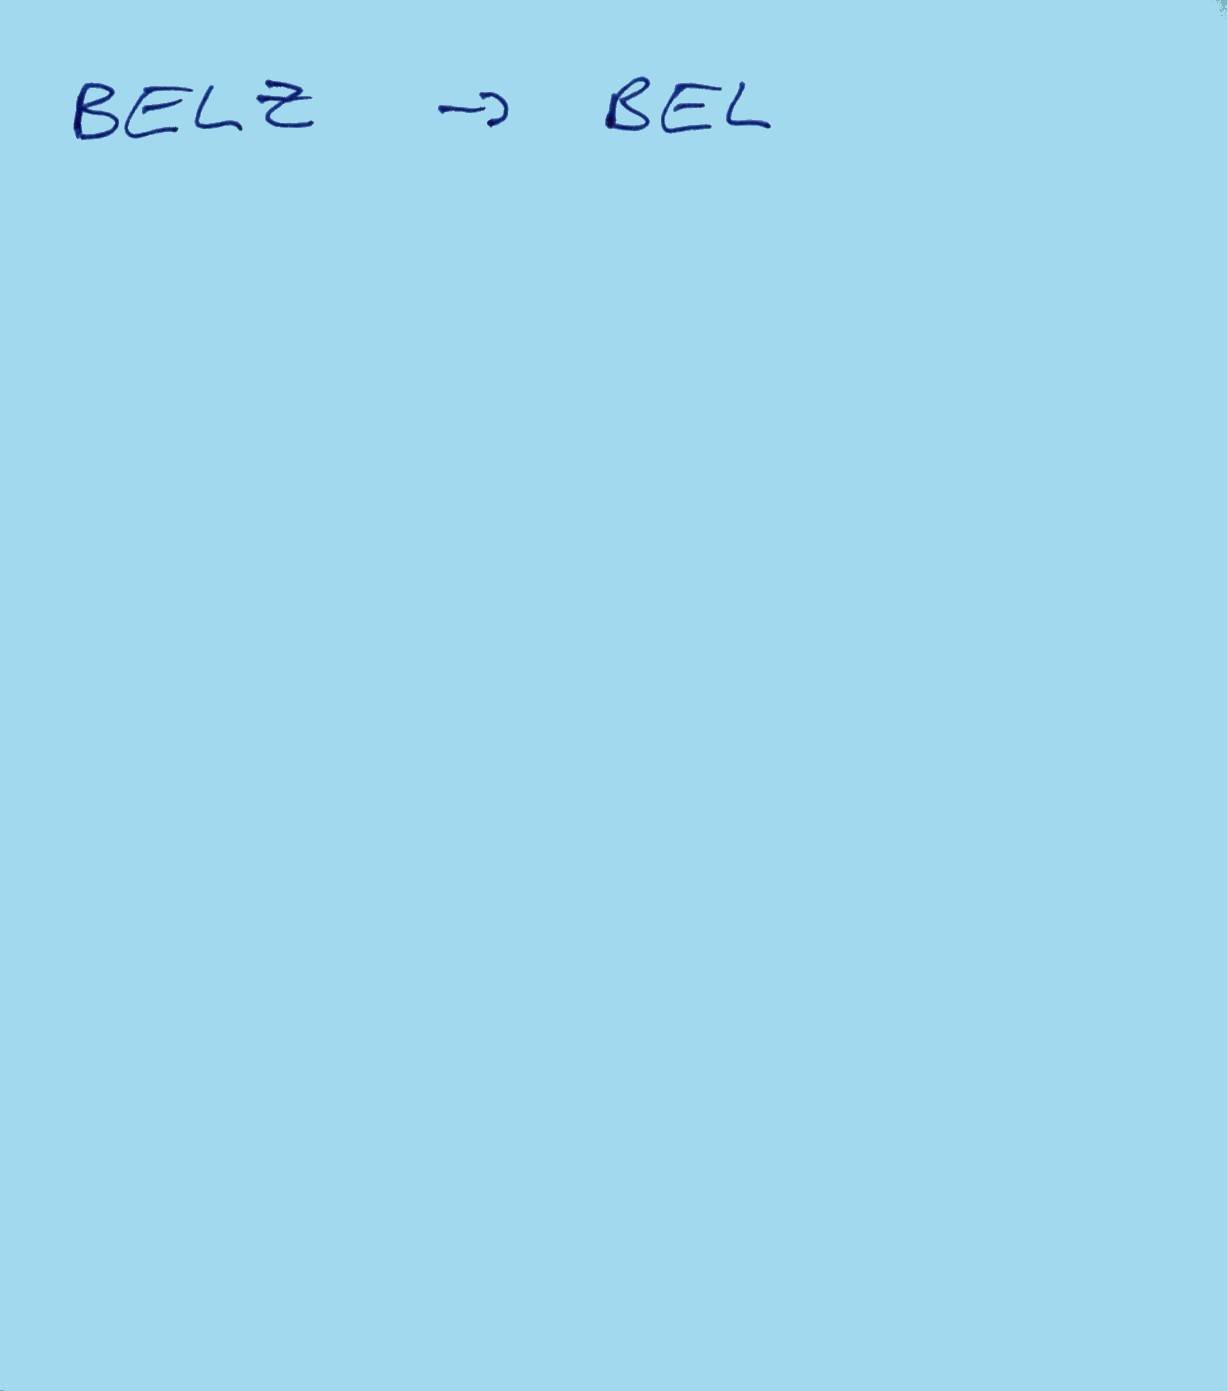 BELZ → BEL